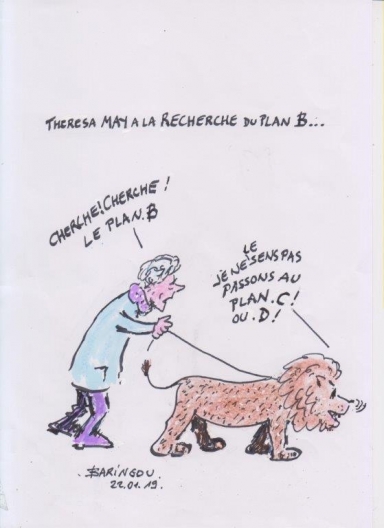 THERESA MAY A LA RECHERCHE DU PLAN B...
CHERCHE! CHERCHE!
LE PLAN.B
LE
JE NE SENS PAS
PASSONS AU
PLAN.C!
OU.D!
BARINGOU.
22.01.19.